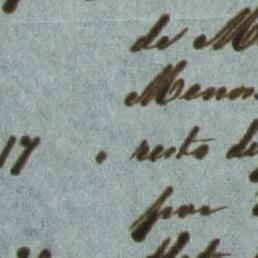 de M
Menos
17 . resto de
por